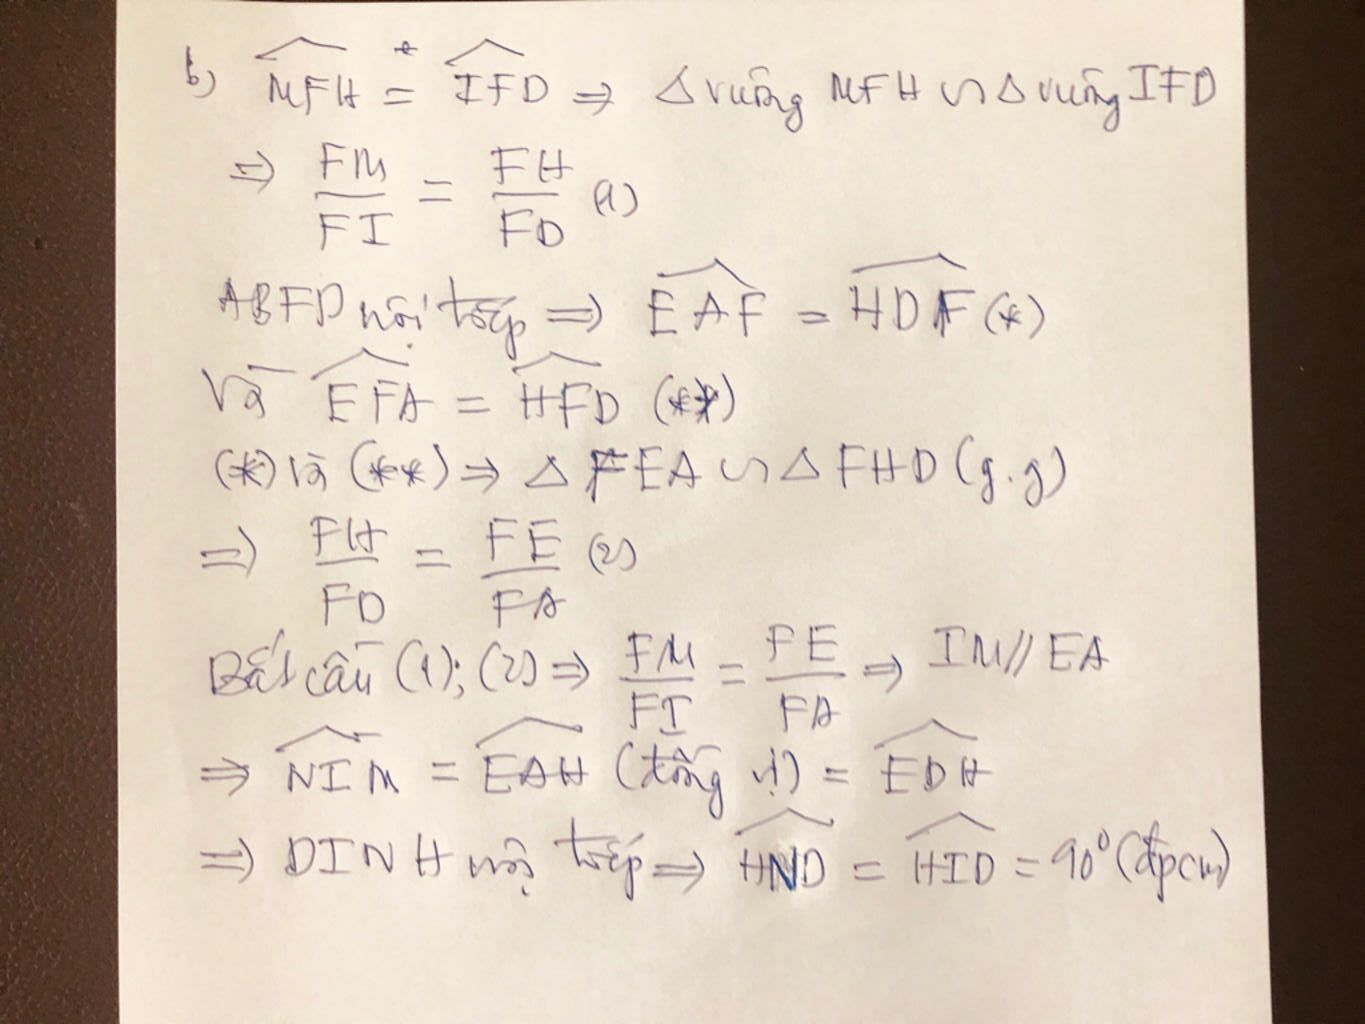 b) \widehat{MFH} = \widehat{IFD} ⇒ Δ vuông MFH ∽ Δ vuông IFD
⇒ \frac{FM}{FI} = \frac{FH}{FD} (1)
ABFD nội tiếp ⇒ \widehat{EAF} = \widehat{HDF} (*)
Và \widehat{EFA} = \widehat{HFD} (**)
(*) và (**) ⇒ Δ FEA ∽ Δ FHD (g.g)
⇒ \frac{FH}{FD} = \frac{FE}{FA} (2)
Bắc cầu (1); (2) ⇒ \frac{FM}{FI} = \frac{FE}{FA} ⇒ IM // EA
⇒ \widehat{NIM} = \widehat{EAH} (đồng vị) = \widehat{EDH}
⇒ DINH nội tiếp ⇒ \widehat{HND} = \widehat{HID} = 90° (đpcm)